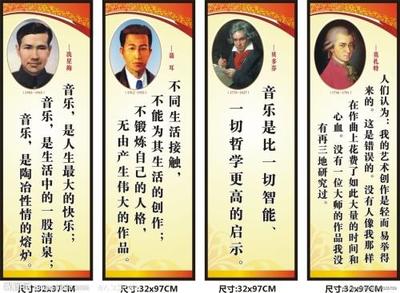 —冼星海
音乐，是人生最大的快乐；
音乐，是生活中的一股清泉；
音乐，是陶冶性情的熔炉。
尺寸:32x97CM
—聂耳
不同生活接触，
不能为其生活的创作；
不锻炼自己的人格，
无由产生伟大的作品。
尺寸:32x97CM
—贝多芬
音乐是比一切智能、
一切哲学更高的启示。
尺寸:32x97CM
—莫扎特
人们认为：我的艺术创作是轻而易举得
来的。这是错误的。没有人像我那样
在作曲上花费了如此大量的时间和
心血。没有一位大师的作品我没
有再三地研究过。
尺寸:32x97CM